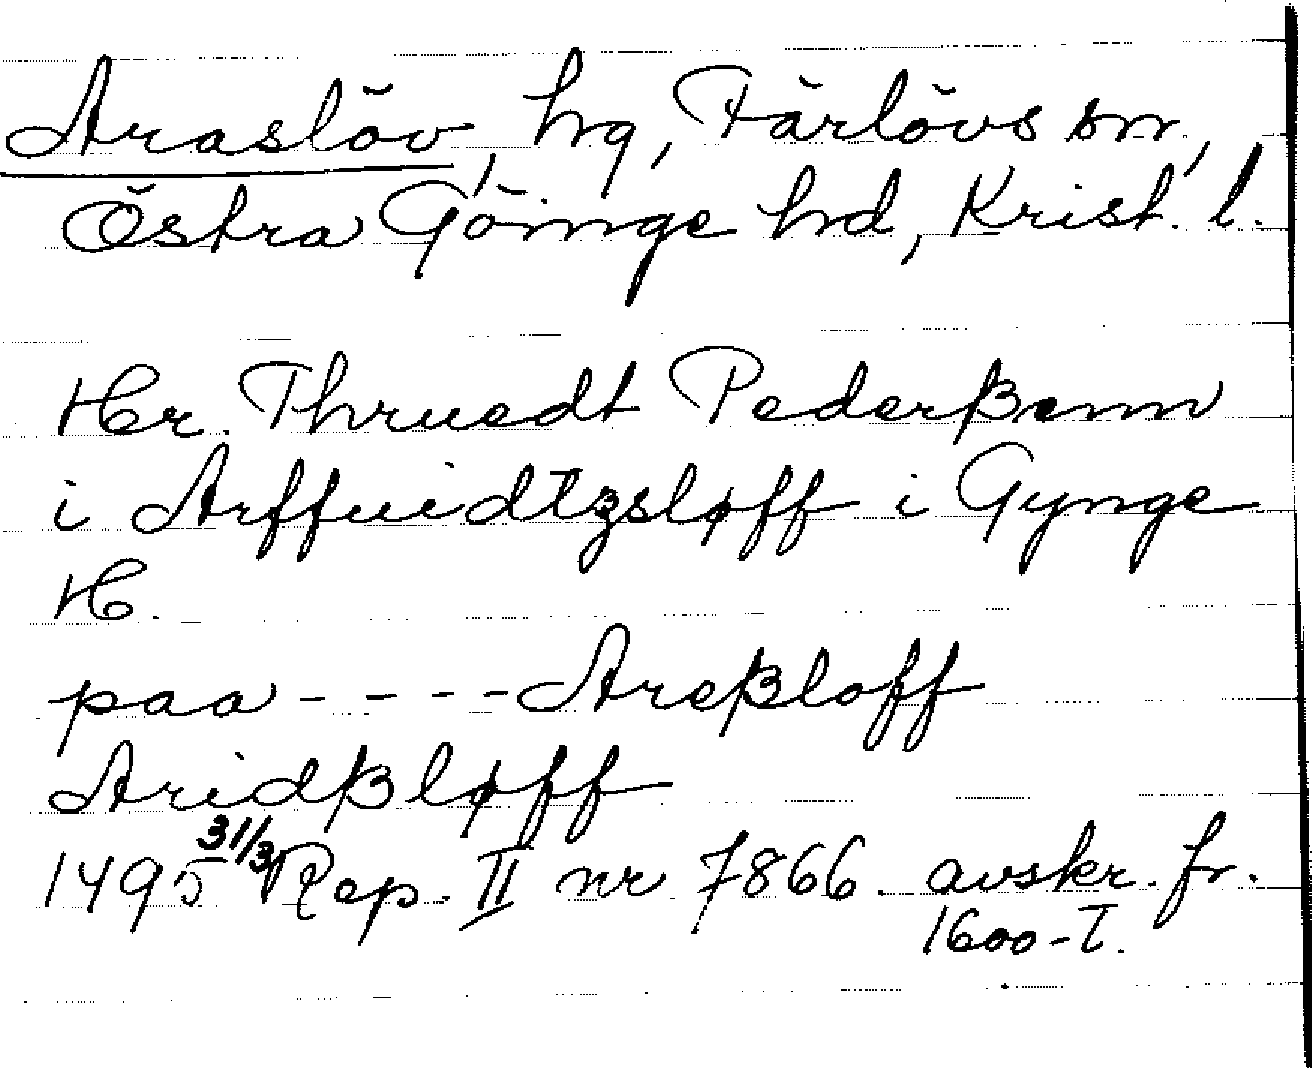 Araslöv, hg, Färlövs sn,
Östra Göinge hd, Krist. l.
Hr. Thruedt Pederßenn
i Arffuidtzsløff i Gynge
H.
paa - - - - Areßloff
Aridßløff
1495 31/3 Rep. II nr 7866. avskr. fr.
1600-t.